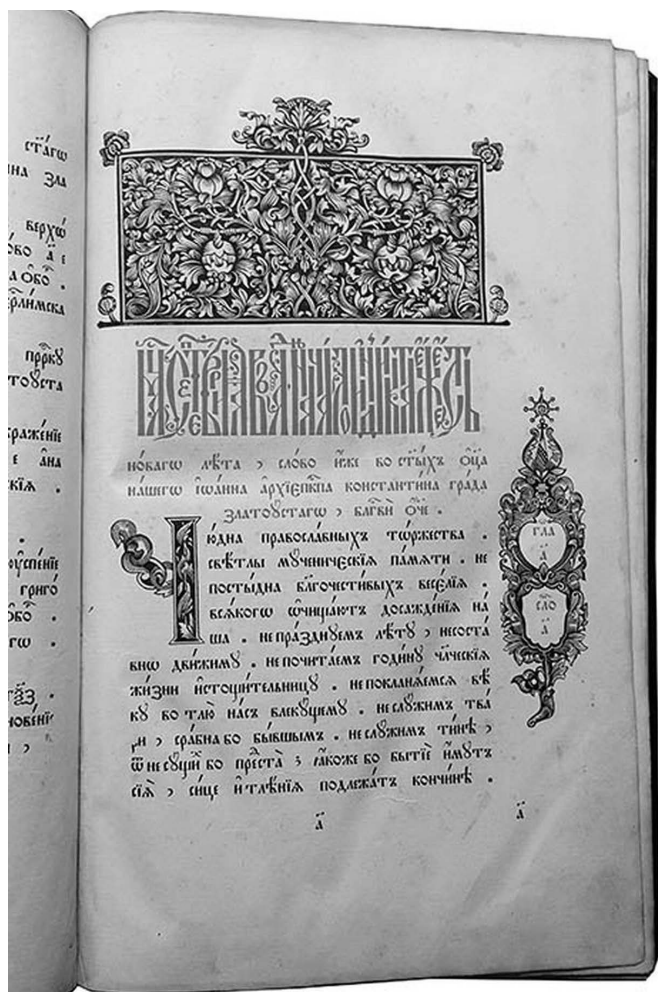 стагѡ
ина зла
верхѡ́
ово а҃ е
а ѻбо̑ .
ерлимска
прⷪ҇рку
тоꙋста
бражénїе
е ана
скїѧ .
ꙋспénїе
григо́
ѻбо̑ .
гѡ .
новенїе
но́вагѡ лѣта , сло́во и҆́же во ст҃ы́хъ ѻ҆ц҃а̀
на́шегѡ і҆ѡа́нна а҆рхїепⷭ҇кпа константи́на гра́да
златоꙋ́стагѡ , блⷭ҇гвѝ ѻ҆́ч҃е .
Чю́дна правосла́вныхъ тѡржества̀ .
свѣ́тлы мꙋ́ченическїѧ па́мѧти . не
посты́дна бл҃гочести́выхъ весе́лїѧ .
всѧ́когѡ ѡ҆чища́ютъ досажде́нїѧ на́
ша . не пра́зднꙋемъ лѣ́тꙋ , несоста́
внѡ дви́жимꙋ . не почита́емъ годи́нꙋ чл҃ческїѧ
жи́зни и҆стощи́тельницꙋ . не покланѧ́емсѧ вѣ́
кꙋ во тлю̀ на́съ влекꙋ́щемꙋ . не слꙋ́жимъ тва́
ри , сра́вна бо бы́вшымъ . не слꙋ́жимъ ти́нѣ ,
ѿ не сꙋ́щїи бо преста̀ з҃ ꙗ҆́коже бо бытїѐ и҆́мꙋтъ
сїѧ̑ , си́це и҆ тлѣ́нїѧ подлежа́тъ кончи́нѣ .
гла
а҃
сло
а҃
а҃
а҃